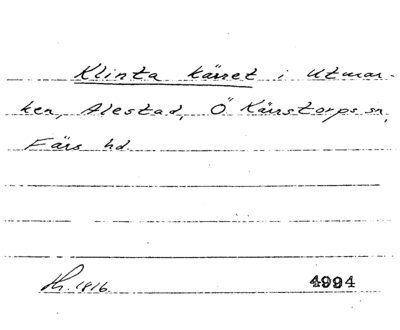 Klinta kärret i Utmar-
ken, Alestad, Ö Kärrstorps sn,
Färs hd
1816 4994